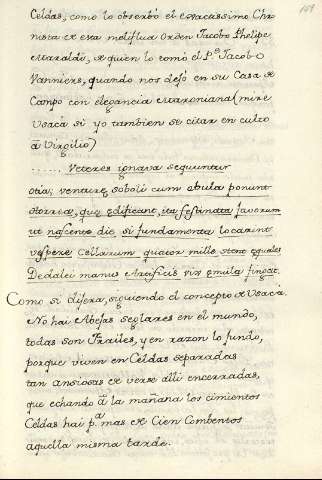 169
Celdas, como lo observó el exactissimo Chro
nista de esta meliflua Orden Jacobo Phelipe
Maraldi, de quien lo tomó el P.e Jacobo
Vanniere, quando nos dejó en su Casa de
Campo con elegancia Maroniana (mire
Usaca si yo tambien se citar en culto
â Virgilio)
...... Veteres ignava sequuntur
otia; venturæ soboli cum
que edificant, ita festinata favorum
ut nascente die si fundamenta locarint
vespere Cellarum quatuor mille stent
Dedalei manus Artificis vix æmula fingat.
Como si dijera, siguiendo el concepto de Usaca.
No hai Abejas seglares en el mundo,
todas son Frailes, y en razon lo fundo,
porque viven en Celdas separadas
tan ansiosas de verse alli encerradas,
que echando â la mañana los cimientos
Celdas hai p.a mas de Cien Combentos
aquella misma tarde.